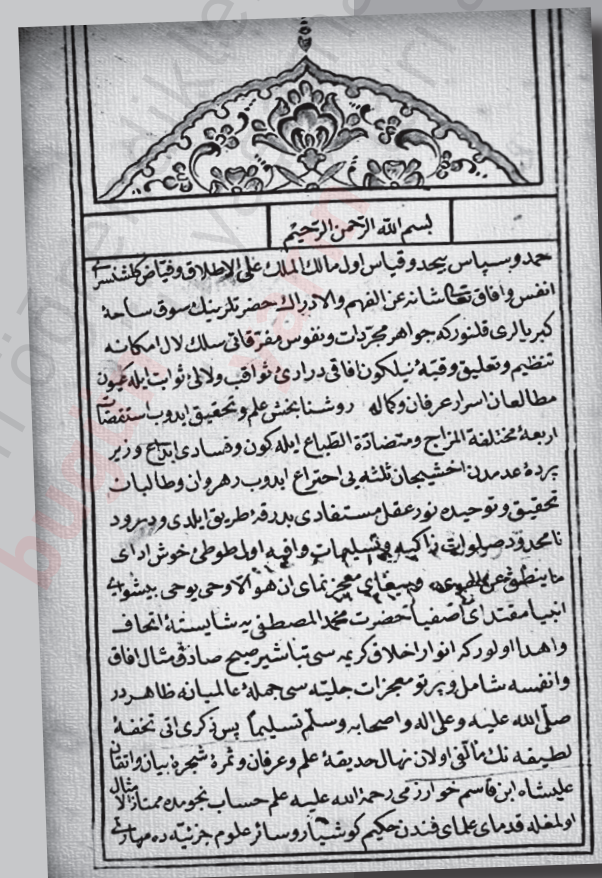 بسم الله الرحمن الرحيم
حمد وسپاس بيحد وقياس اول مالك الملك على الاطلاق وفياض كلشنسراى
انفس وافاق تعاشانه عن الفهم والادراك حضرتلرينك سوق ساحۀ
كبريالرى قلنوركه جواهر مجردات ونفوس مفرقاتى سلك لال امكانه
تنظيم وتعليق وقبۀ نيلكون افاقى درارئ ثواقب ولالئ ثوابت ايله عيون
مطالعان اسرار عرفان وكماله روشنابخش علم وتحقيق ايدوب استقصات
اربعۀ مختلفة المزاج ومتضادة الطباع ايله كون وفسادى ابداع وزير
پردۀ عدمدن اخشيجان ثلثه يى احتراع ايدوب رهروان وطالبات
تحقيق وتوحيده نور عقل مستفادى بدرقۀ طريق ايلدى ودرود
نامحدود صلوات زاكيه وتسليمات وافيه اول طوطئ خوش اداى
ما ينطق عن الهوى وببغاى معجزنماى ان هو الا وحى يوحى پيشواى
انبيا مقتداى اصفيا حضرت محمد المصطفى يه شايستۀ اتحاف
واهدا اولوركه انوار اخلاق كريمه سى تباشير صبح صادق مثال افاق
وانفسه شامل وپرتو معجزات جليله سى جملۀ عالميانه ظاهر در
صلى الله عليه وعلى اله واصحابه وسلم تسليماً پس ذكرى اتى تحفۀ
لطيفه نك مألفى اولان نهال حديقۀ علم وعرفان وثمرۀ شجرۀ بيان واتقان
عليشاه ابن قاسم خوارزمى رحمة الله عليه علم حساب نجومده ممتاز الامثال
اولمغله قدماى علماى فندن حكيم كوشيار وسائر علوم جزئيه ده مهارتى